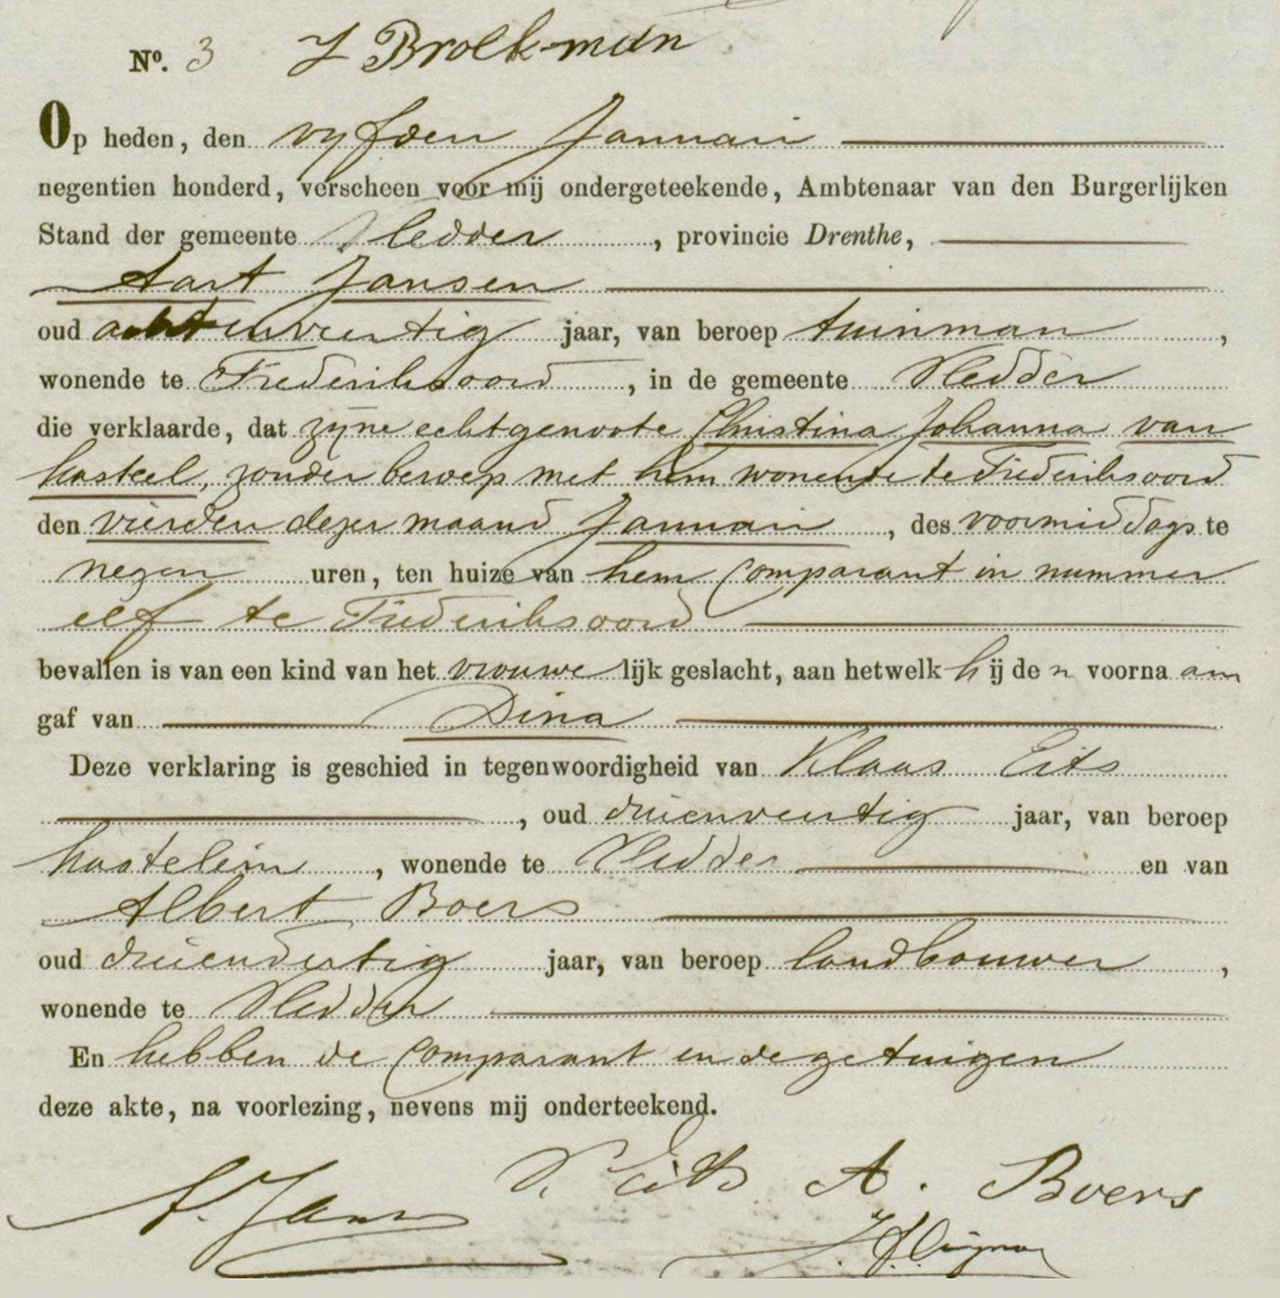 Nº. 3 J Broekman
Op heden, den vyfden Januari
negentien honderd, verscheen voor mij ondergeteekende, Ambtenaar van den Burgerlijken
Stand der gemeente Vledder, provincie Drenthe,
Aart Jansen
oud achtenveertig jaar, van beroep tuinman,
wonende te Frederiksoord, in de gemeente Vledder
die verklaarde, dat zijne echtgenoote Christina Johanna van
hasteel, zonder beroep met hem wonende te Frederiksoord
den vierden dezer maand Januari, des voormiddags te
negen uren, ten huize van hem comparant in nummer
elf te Frederiksoord
bevallen is van een kind van het vrouwelijk geslacht, aan hetwelk hij den voornaam
gaf van Dina
Deze verklaring is geschied in tegenwoordigheid van Klaas Eits
, oud drieenveertig jaar, van beroep
kastelein, wonende te Vledder en van
Albert Boers
oud drieendertig jaar, van beroep landbouwer,
wonende te Vledder
En hebben de comparant en de getuigen
deze akte, na voorlezing, nevens mij onderteekend.
A. Jansen K. Eits A. Boers